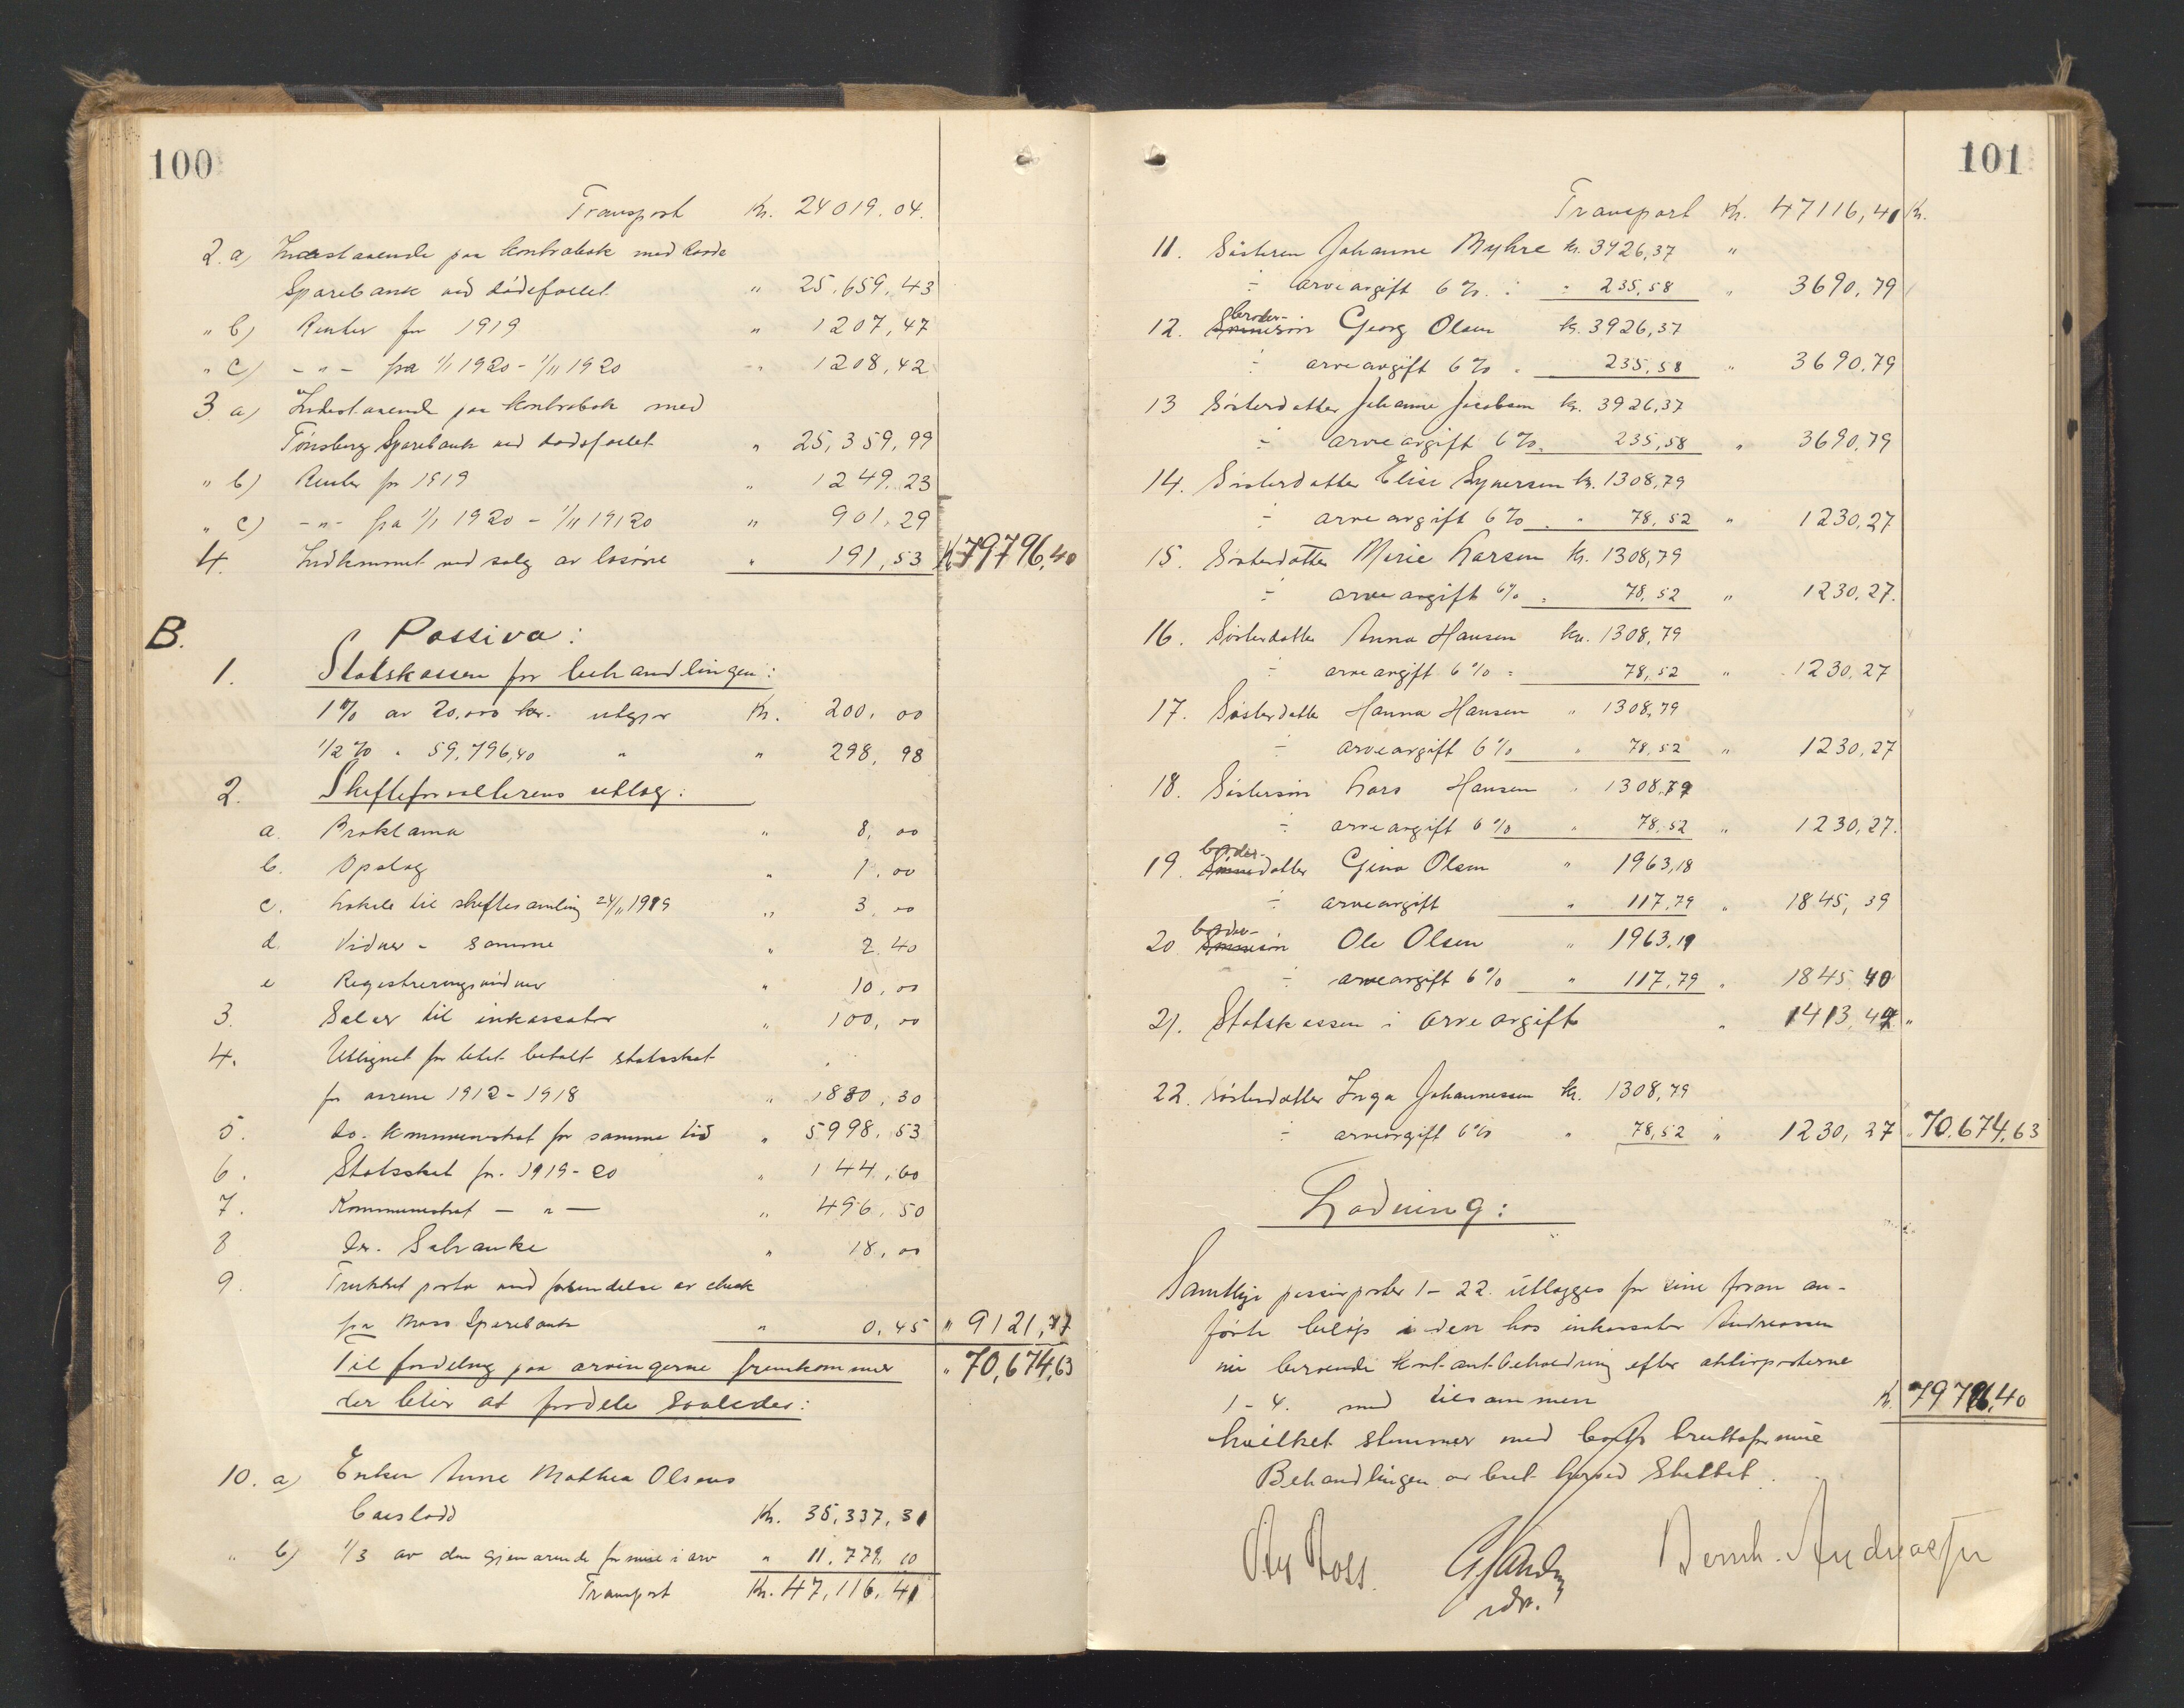 100
Transport Kr. 24019.04.
2. a) Indestaaende paa kontrabok med
Sparebank ved dödsfallet " 25.659,43
" b) Renter for 1919 " 1207,47
" c) - " - fra 1/1 1920 - 1/11 1920 " 1208,42
3 a) Indestaaende paa kontrabok med
Tönsberg Sparebank ved dödsfallet " 25,359,99
" b) Renter for 1919 " 1249.23
" c) - " - fra 1/1 1920 - 1/11 1920 " 901,29
4. Indkommet ved salg av lösöre " 191,53 Kr 79796,40
B. Passiva:
1. Statskassen for behandlingen:
1% av 20.000 kr. utgjör Kr. 200,00
1/2 % " 59,796,40 " " 298,98
2. Skifteforvalterens utlæg:
a. Proklama " 8,00
b. Opslag " 1,00
c. Lokale til skiftesamling 24/11 1919 " 3,00
d. Vidner - samme " 2.40
e Registreringsvidner " 10,00
3. Salær til inkassator " 100,00
4. Utlignet for litet betalt statsskat
for aarene 1912 - 1918 " 1880,30
5. do. kommuneskat for samme tid " 5998,53
6. Statsskat for 1919-20 " 144,60
7. Kommuneskat - " - " 496,50
8 Dr. " 18,00
9. Trukket porto ved forsendelse av check
fra Moss Sparebank " 0,45 " 9121,77
Til fordeling paa arvingerne fremkommer " 70,674,63
der blir at fordele saaledes:
10. a) Enken Anne Mathea Olsens
boeslodd Kr. 35,337,31
" b) 1/3 av den gjenværende formue i arv " 11.779,10
Transport Kr. 47,116,41
101
Transport Kr. 47116,41 Kr.
11. Sösteren Johanne Myhre kr. 3926,37 "
÷ arveavgift 6% : " 235,58 " 3690,79
12. broder-
Sönnesön Georg Olsen kr. 3926,37
÷ arveavgift 6% " 235,58 " 3690,79
13 Sösterdatter Johanne Jacobsen kr. 3926,37
÷ arveavgift 6% " 235,58 " 3690,79
14. Sösterdatter Elise Syversen kr. 1308,79
÷ arveavgift 6% " 78,52 " 1230,27
15. Sösterdatter Marie Larsen kr. 1308,79
÷ arveavgift 6% " 78,52 " 1230,27.
16. Sösterdatter Anna Hansen kr. 1308,79
÷ arveavgift 6% " 78,52 " 1230,27
17. Sösterdatter Hanna Hansen " 1308,79
÷ arveavgift 6% " 78,52 " 1230,27
18. Söstersön Lars Hansen " 1308,79
÷ arveavgift 6% " 78,52 " 1230,27.
19. broder-
Sönnedatter Gina Olsen " 1963,18
÷ arveavgift " 117,79 " 1845,39
20. broder-
Sönnesön Ole Olsen " 1963,19
÷ arveavgift 6% " 117,79 " 1845.40
21. Statskassen i arveavgift " 1413,49 "
22. Sösterdatter Inga Johannessen kr. 1308,79
÷ arveavgift 6% " 78,52 " 1230,27 " 70.674,63
Lodning:
Samtlige passivposter 1 - 22. utlægges for sine foran an-
förte belöp i den hos inkassator Andreassen
nu beroende kontantbeholdning efter aktivposterne
1 - 4. med tilsammen Kr. 79796,40
hvilket stemmer med boets bruttoformue
Behandlingen av boet herved sluttet.
Bernh. Andreassen